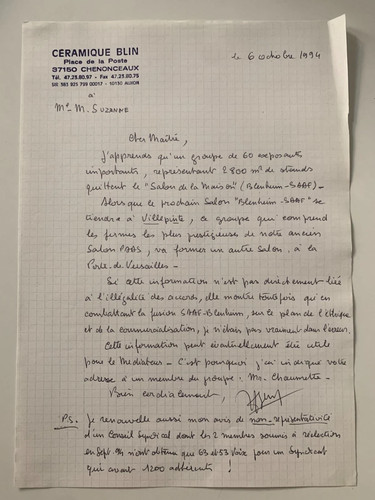 CERAMIQUE BLIN
Place de la Poste
37150 CHENONCEAUX
à
Me M. SUZANNE
le 6 octobre 1994
Cher Maître,
J'apprends qu'un groupe de 60 exposants
importants, représentant 2 800 m² de stands
quittent le "Salon de la Maison" (Blenheim-SAAF) -
Alors que le prochain Salon "Blenheim-SAAF" se
tiendra à Villepinte, ce groupe qui comprend
les firmes les plus prestigieuses de notre ancien
Salon va former un autre Salon à la
Porte de Versailles -
Si cette information n'est pas directement liée
à l'illégalité des accords, elle montre toutefois qu'en
combattant la fusion SAAF-Blenheim, sur le plan de l'éthique
et de la commercialisation, je n'étais pas vraiment dans l'erreur.
Cette information peut éventuellement être utile
pour le Médiateur - C'est pourquoi j'ai indiqué votre
adresse à un membre du groupe : Mr.
Bien cordialement,
P.S. Je renouvelle aussi mon avis de non-représentativité
d'un Conseil Syndical dont les 2 membres soumis à réélection
en Sept. 94 n'ont obtenu que 63 et 53 voix pour un Syndicat
qui avait 1200 adhérents !